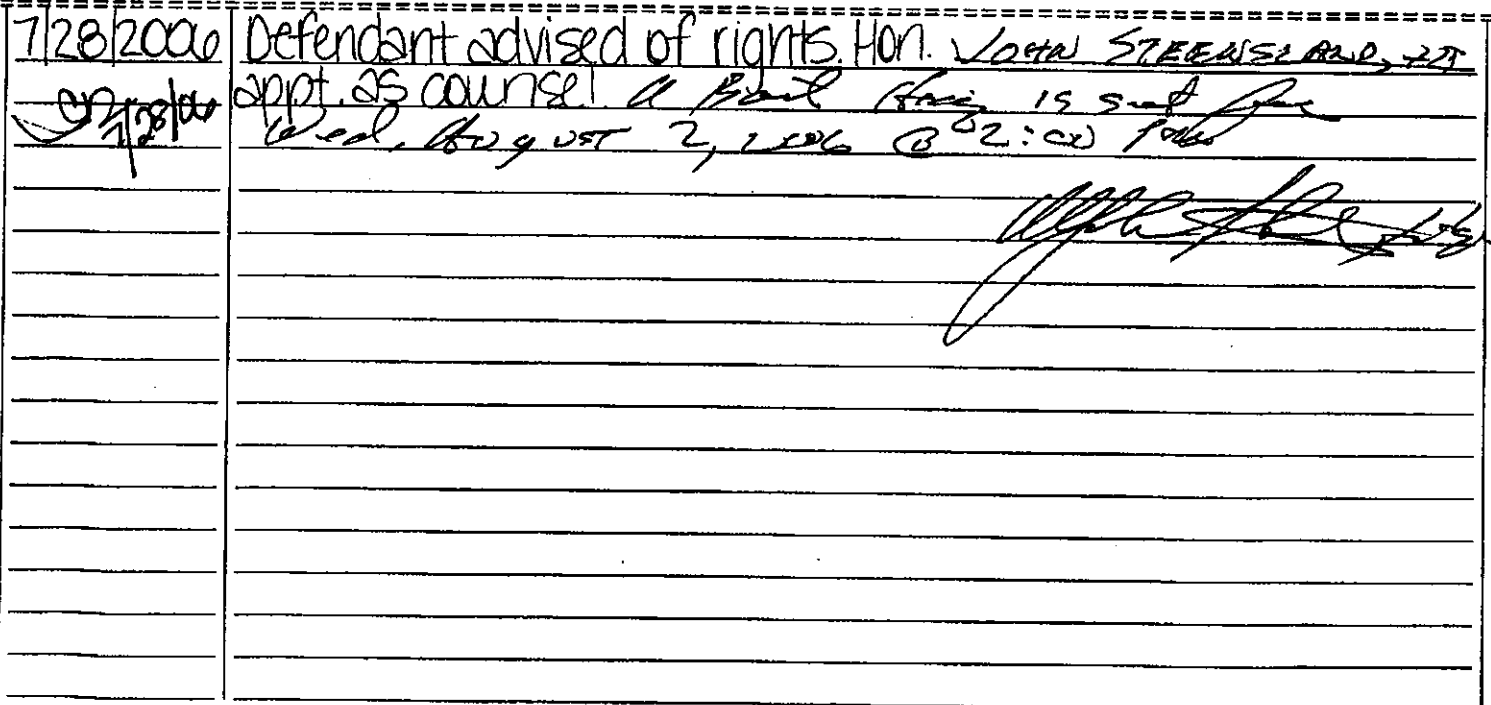 7/28/2006 Defendant advised of rights. Hon. JOHN STEENSLAND, III
appt. as counsel. A Bond Hrg is set for
7/28/06 Wed, August 2, 2006 @ 2:00 PM
Judge